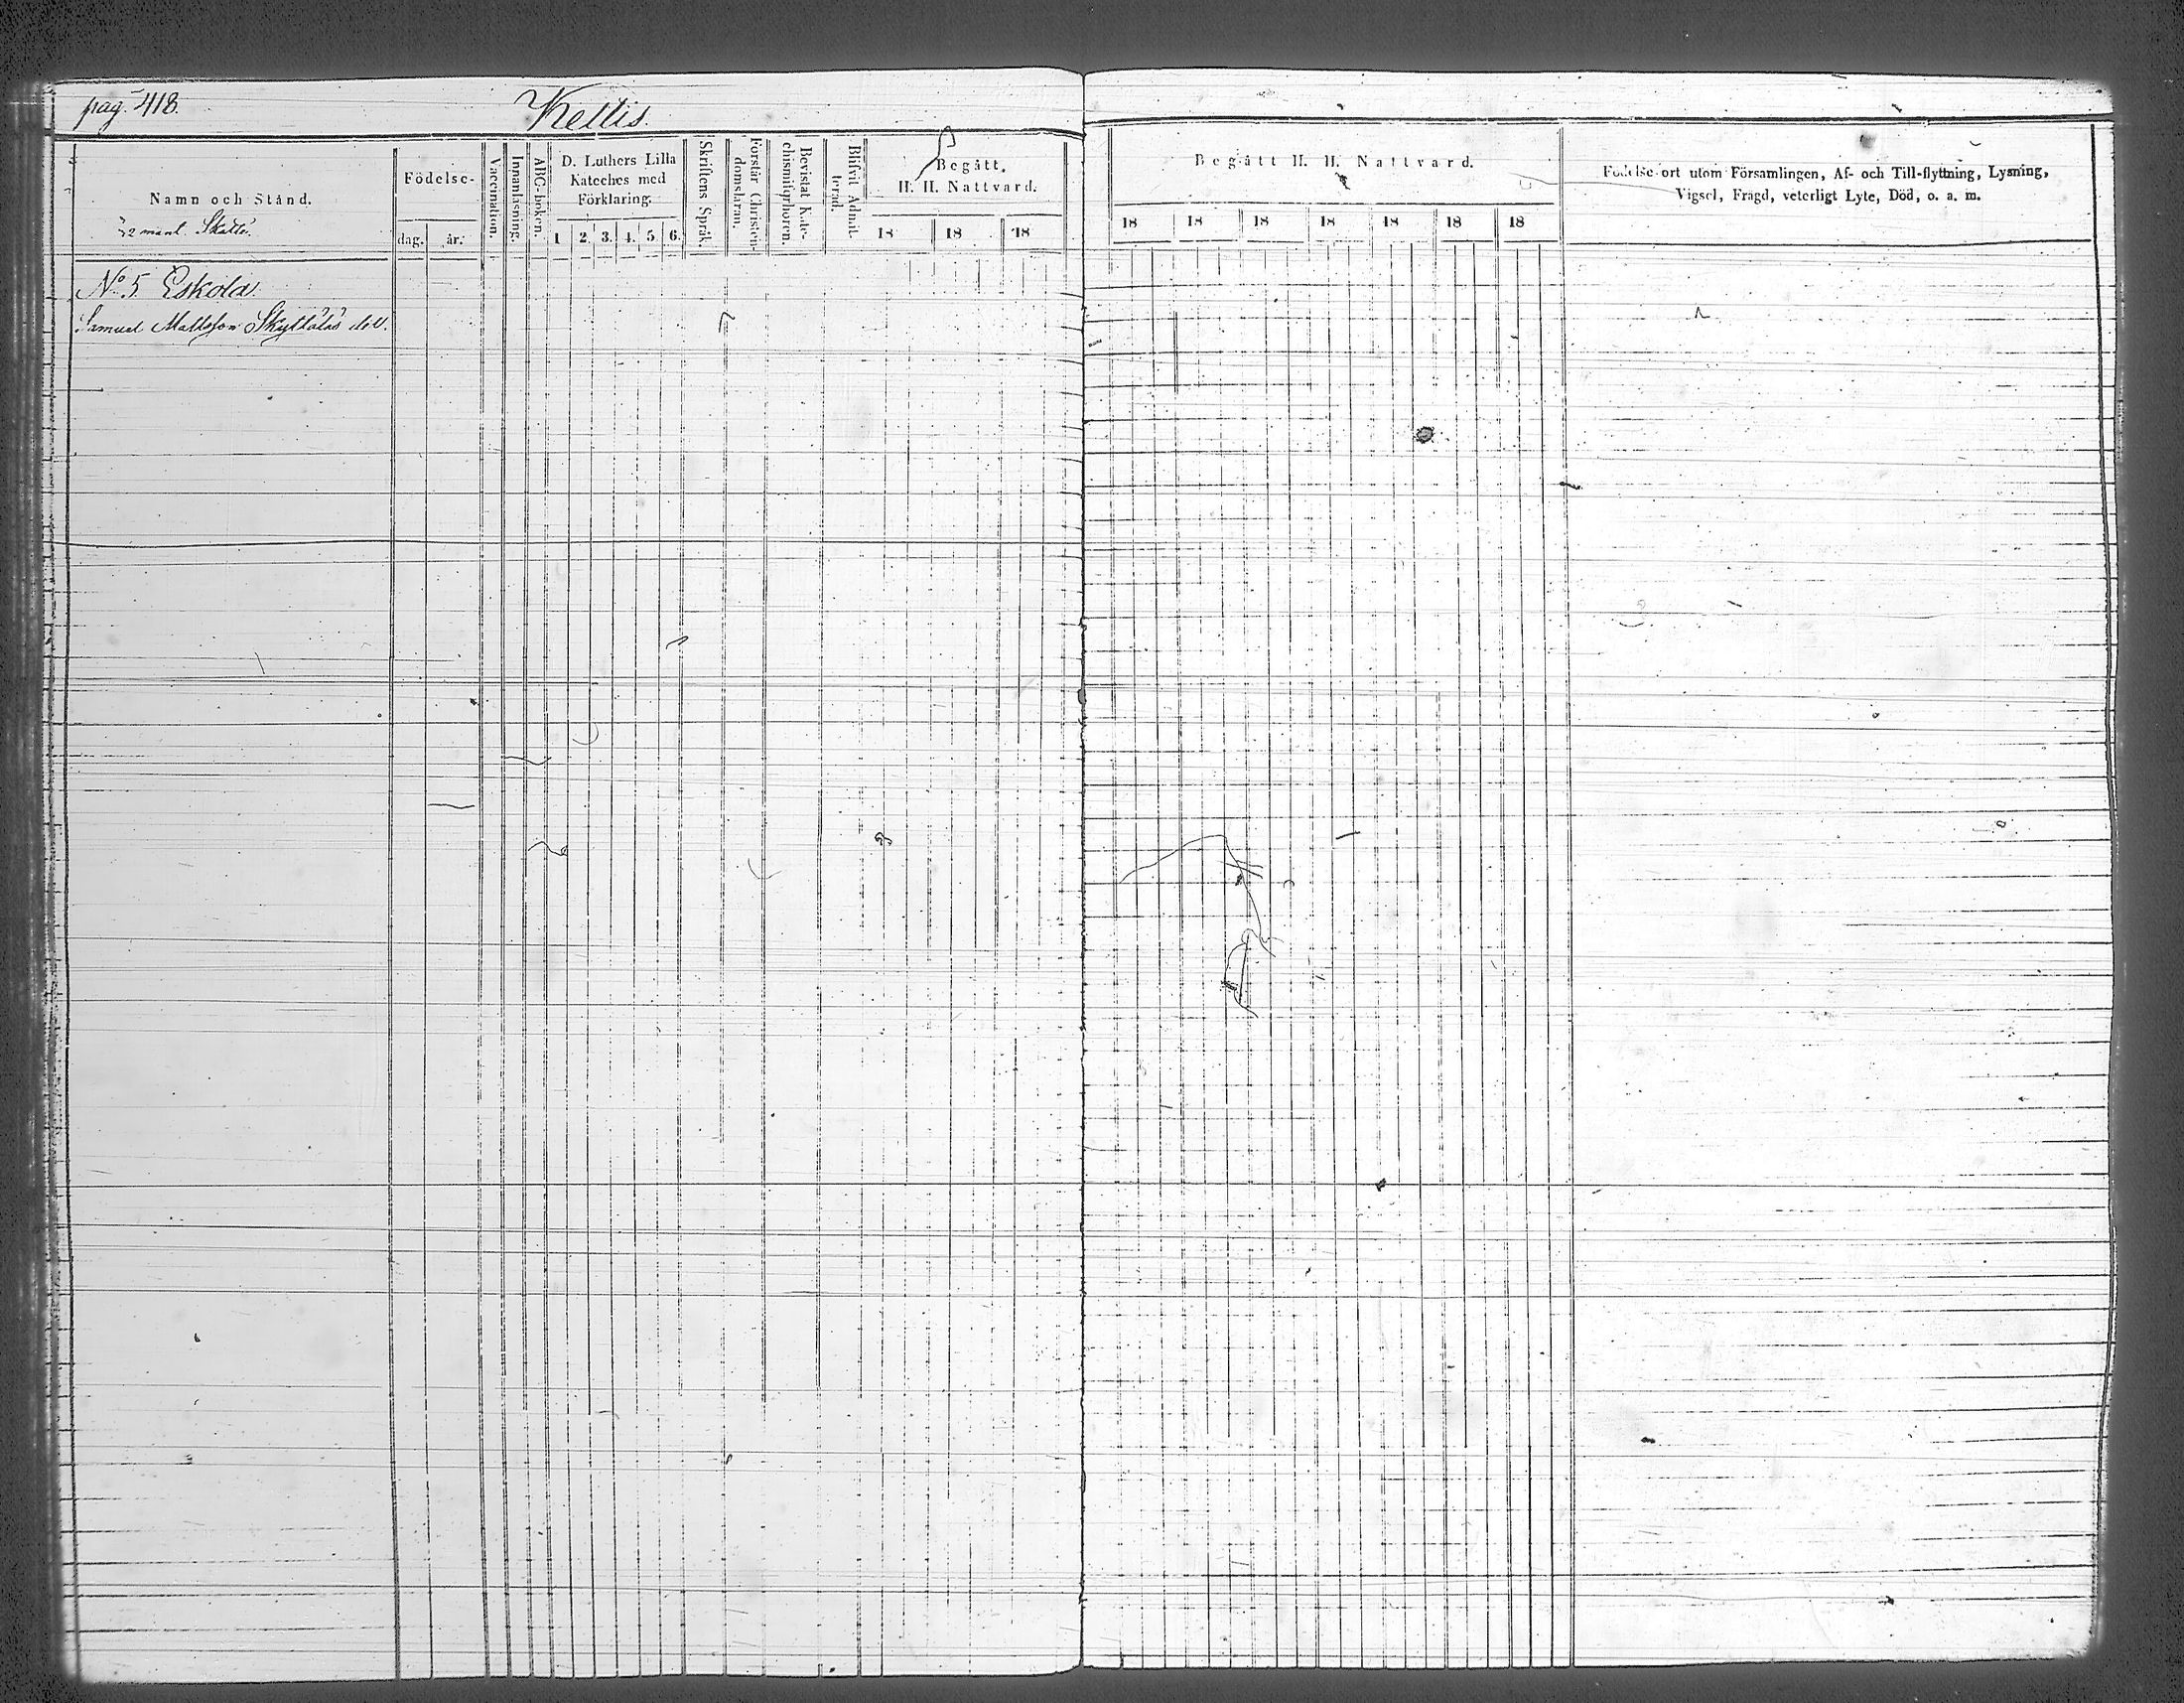 pag. 418.
Keltis.
Namn och Stånd.
mant. Skatte.
Födelse-
dag. år.
Vaccination.
Innanläsning.
ABC-boken.
D. Luthers Lilla
Kateches med
Förklaring.
1 2. 3. 4. 5 6.
Skriftens Språk.
Förstår Christen-
domsläran.
Bevistat Kate-
chismiförhören.
Blifvit Admit-
terad.
Begått.
H. H. Nattvard.
18 18 18
Begått H. H. Nattvard.
18 18 18 18 18 18 18
Födelse-ort utom Församlingen, Af- och Till-flyttning, Lysning,
Vigsel, Frägd, veterligt Lyte, Död, o. a. m.
No 5 Eskola.
Samuel Mattsson Skyttäläs del.